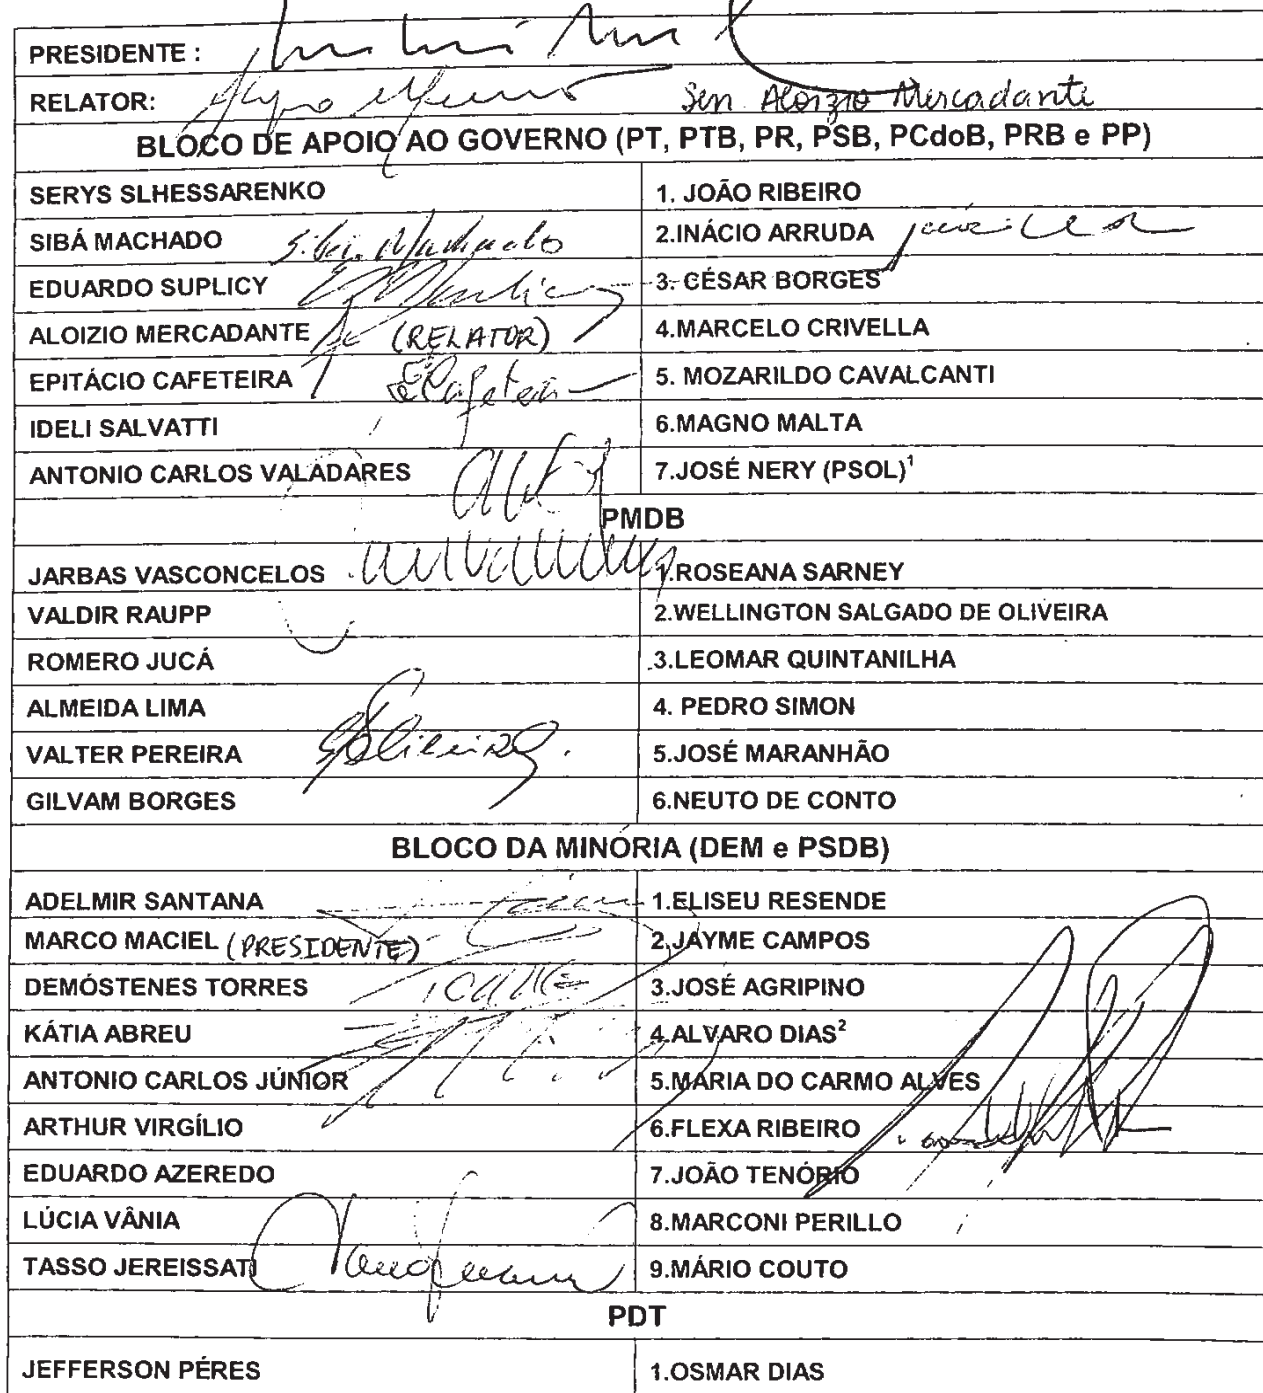 PRESIDENTE :
RELATOR: Sen Aloizio Mercadante
BLOCO DE APOIO AO GOVERNO (PT, PTB, PR, PSB, PCdoB, PRB e PP)
SERYS SLHESSARENKO 1. JOÃO RIBEIRO
SIBÁ MACHADO Sibá Machado 2.INÁCIO ARRUDA
EDUARDO SUPLICY 3. CÉSAR BORGES
ALOIZIO MERCADANTE (RELATOR) 4.MARCELO CRIVELLA
EPITÁCIO CAFETEIRA ECafeteira 5. MOZARILDO CAVALCANTI
IDELI SALVATTI 6.MAGNO MALTA
ANTONIO CARLOS VALADARES 7.JOSÉ NERY (PSOL)¹
PMDB
JARBAS VASCONCELOS 1.ROSEANA SARNEY
VALDIR RAUPP 2.WELLINGTON SALGADO DE OLIVEIRA
ROMERO JUCÁ 3.LEOMAR QUINTANILHA
ALMEIDA LIMA 4. PEDRO SIMON
VALTER PEREIRA 5.JOSÉ MARANHÃO
GILVAM BORGES 6.NEUTO DE CONTO
BLOCO DA MINORIA (DEM e PSDB)
ADELMIR SANTANA 1.ELISEU RESENDE
MARCO MACIEL (PRESIDENTE) 2.JAYME CAMPOS
DEMÓSTENES TORRES 3.JOSÉ AGRIPINO
KÁTIA ABREU 4.ALVARO DIAS²
ANTONIO CARLOS JÚNIOR 5.MARIA DO CARMO ALVES
ARTHUR VIRGÍLIO 6.FLEXA RIBEIRO
EDUARDO AZEREDO 7.JOÃO TENÓRIO
LÚCIA VÂNIA 8.MARCONI PERILLO
TASSO JEREISSATI 9.MÁRIO COUTO
PDT
JEFFERSON PÉRES 1.OSMAR DIAS